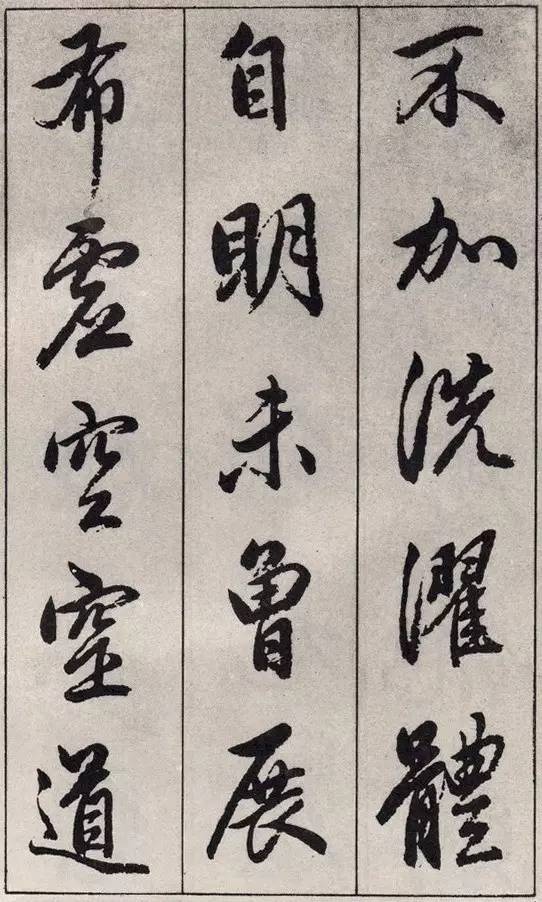 不加洗濯體
自明未曾展
布虚空窒道